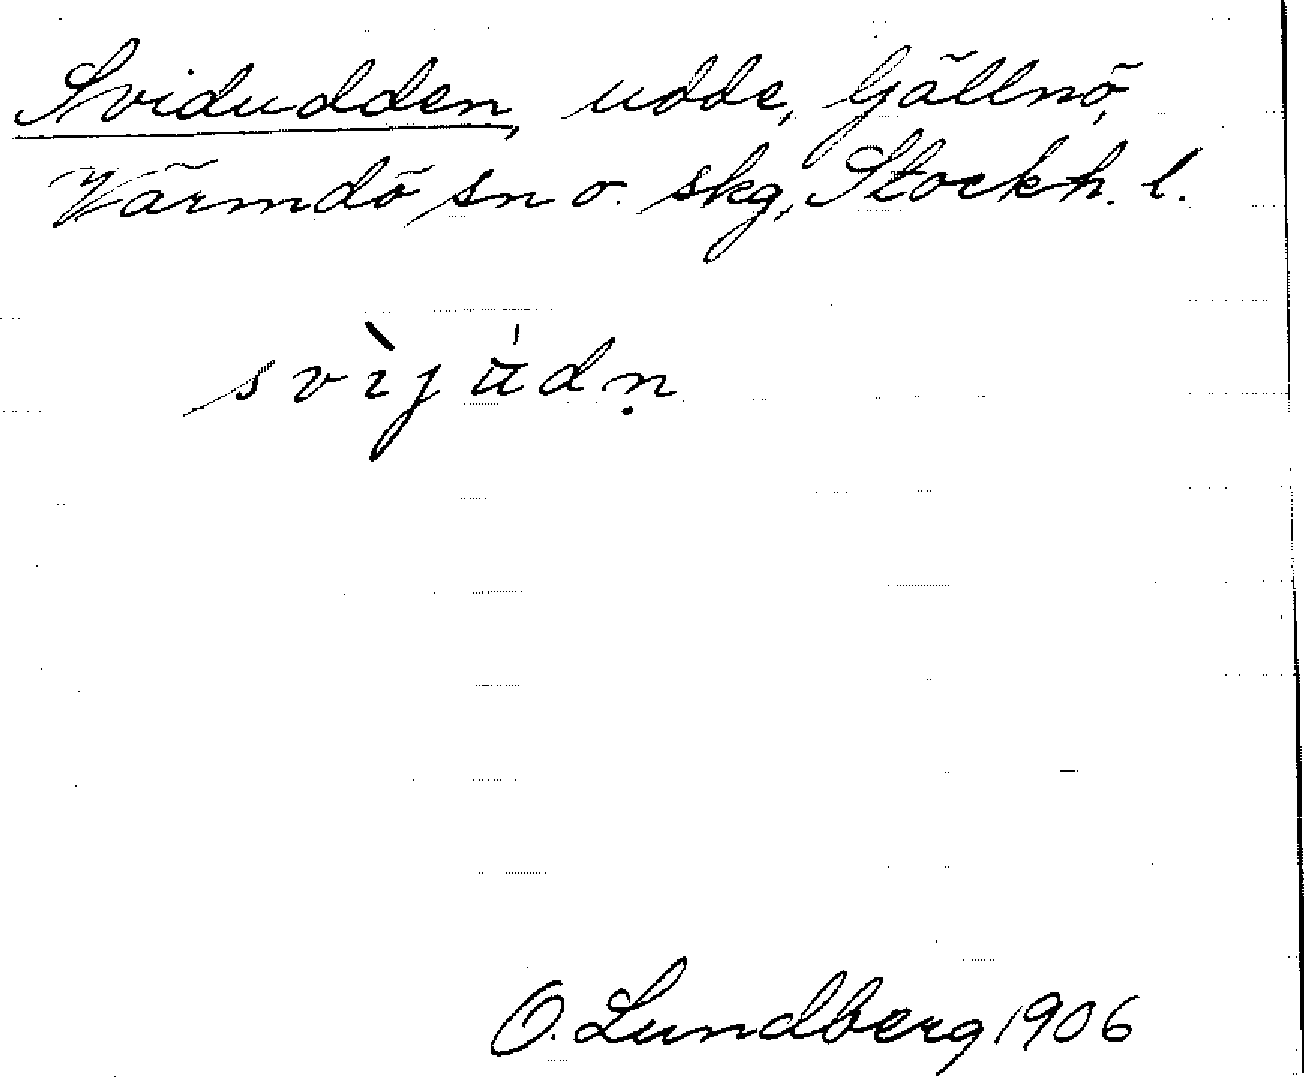 Svidudden, udde, Gällnö,
Värmdö sn o. skg, Stockh. l.
svìj ú̈dṇ
O. Lundberg 1906